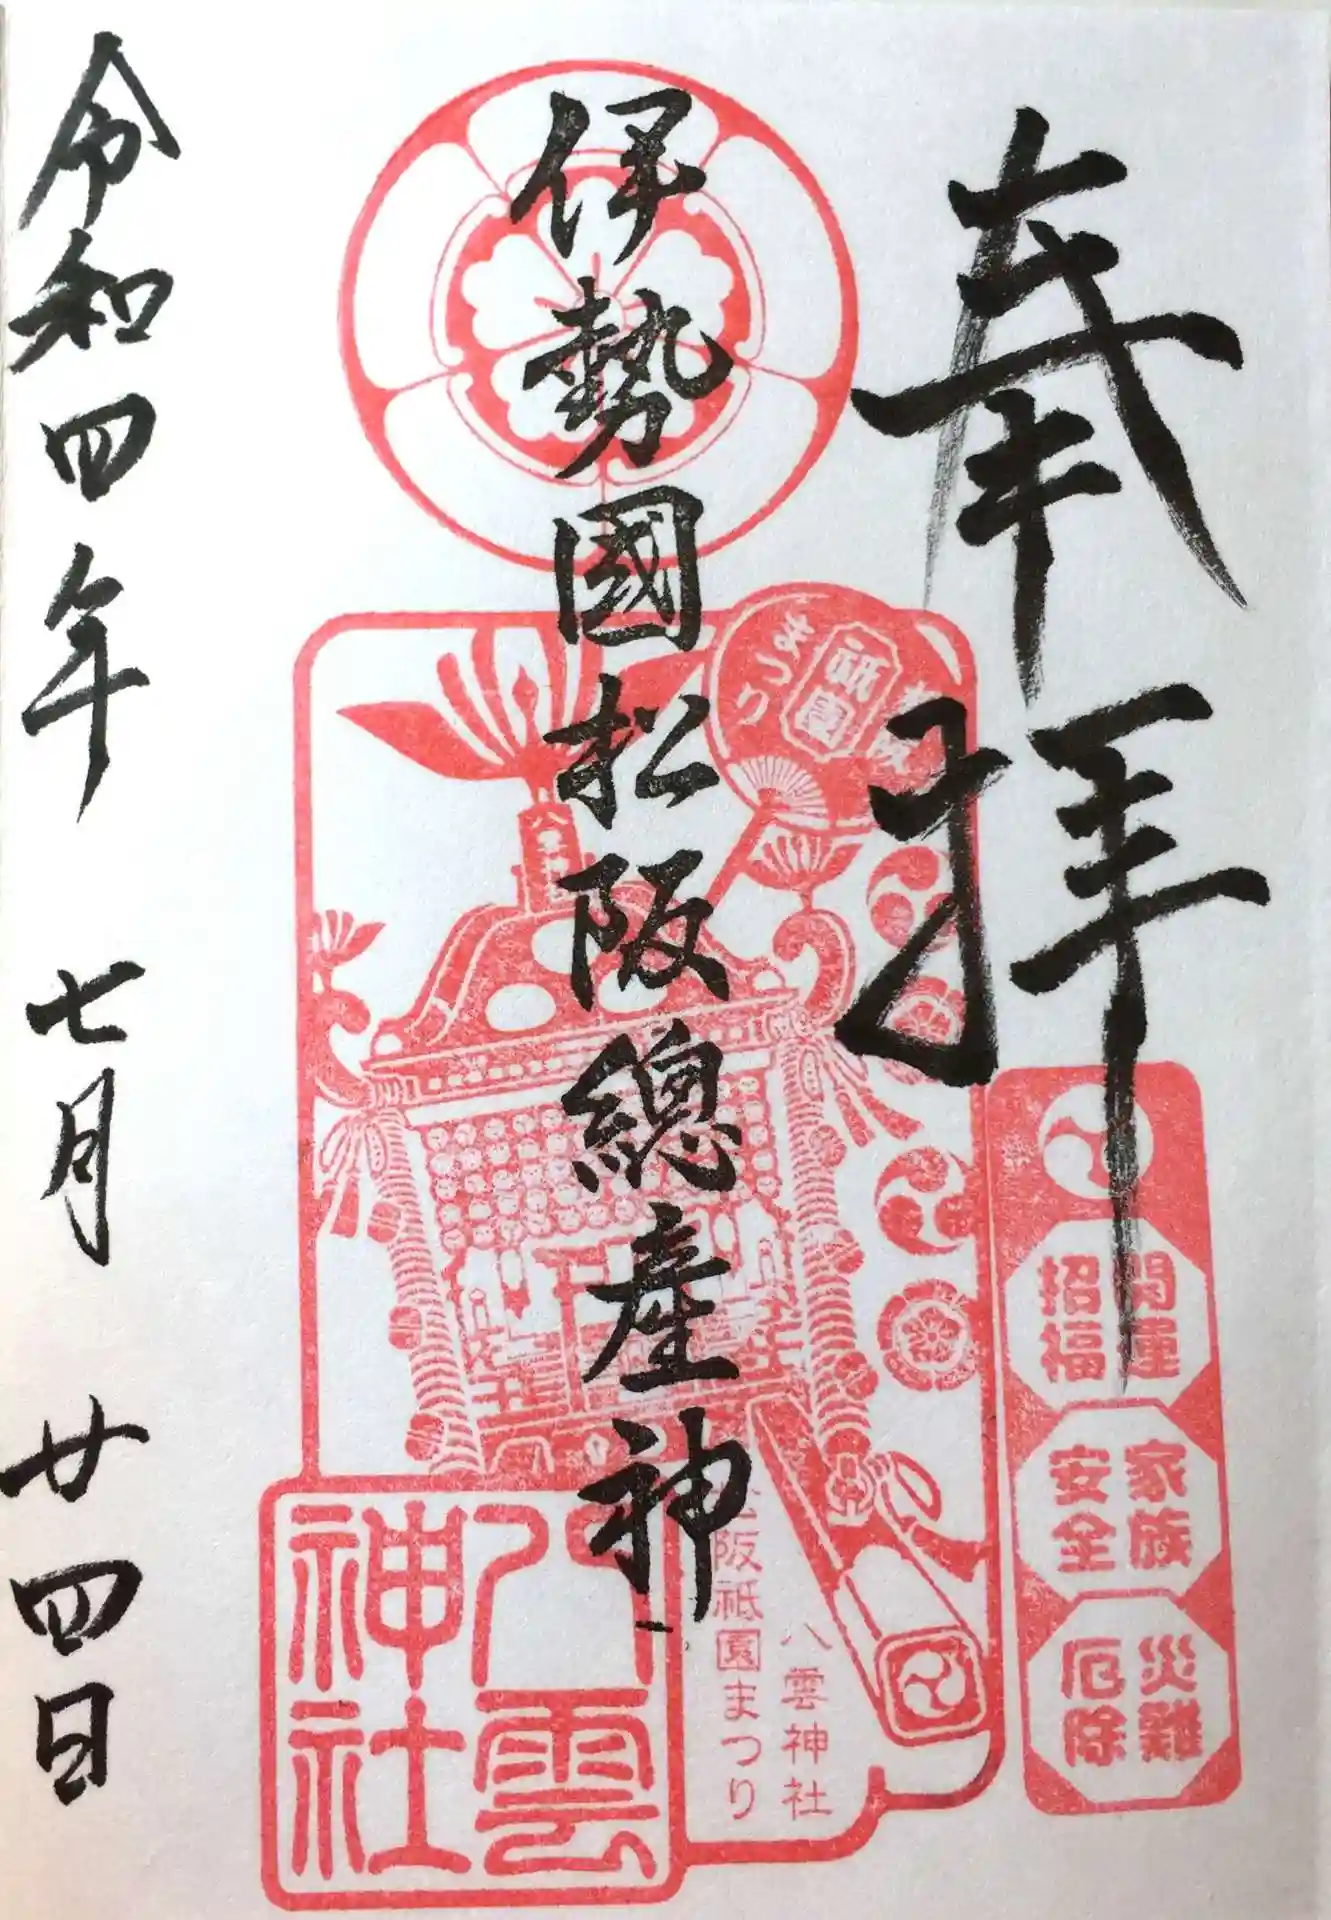 奉拝
開運
招福
家族
安全
災難
厄除
伊勢國松阪總産神
祇園
まつり
八雲神社
阪祇園まつり
八雲
神社
令和四年 七月 廿四日